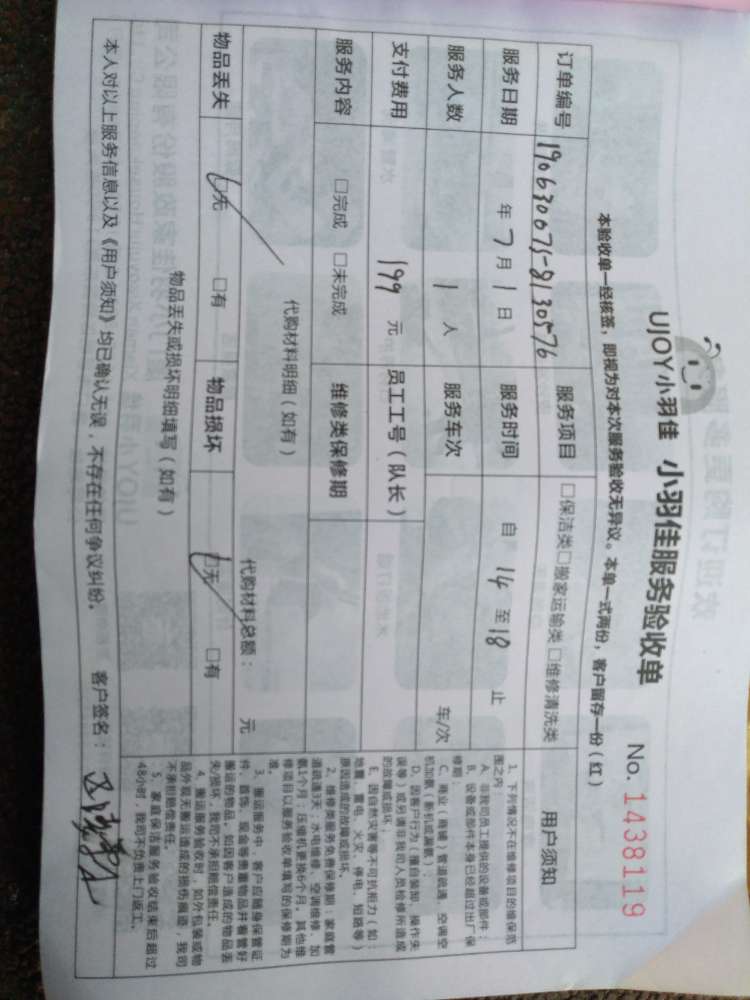 UJOY小羽佳 小羽佳服务验收单
No. 1438119
本验收单一经核签，即视为对本次服务验收无异议。本单一式两份，客户留存一份（红）
订单编号 190630073-8130576 服务项目 □保洁类□搬家运输类□维修清洗类
服务日期 年 7 月 1 日 服务时间 自 14 至 18 止
服务人数 1 人 服务车次 车/次
支付费用 199 元 员工工号（队长）
服务内容 □完成 □未完成 维修类保修期
代购材料明细（如有）
代购材料总额： 元
物品丢失 □无 □有 物品损坏 □无 □有
物品丢失或损坏明细填写（如有）
本人对以上服务信息以及《用户须知》均已确认无误，不存在任何争议纠纷。 客户签名：
用户须知
1、下列情况不在维修项目的维保范
围之内：
A、非我司员工提供的设备或部件；
B、设备或部件本身已经超过出厂保
修期；
C、商业（商铺）管道疏通、空调空
机加氨（新机或漏氨）；
D、因客户行为（擅自装卸、操作失
误等）或另请非我司人员检修所造成
的故障或损坏；
E、因自然灾害等不可抗拒力（如：
地震、雷电、火灾、停电、短路等）
原因造成的故障或损坏。
2、维修类服务免费保修期：家庭管
道疏通3天；水电维修、空调维修、加
氨1个月；压缩机更换6个月。其他维
修项目以服务验收单填写的保修期为
准。
3、搬运服务中，客户应随身保管证
件、首饰、现金等贵重物品并看管好
搬运的物品。如因客户造成的物品丢
失/损坏，我司不承担赔偿责任。
4、搬运服务验收时，如外包装或物
品外观无搬运造成的损伤痕迹，我司
不承担赔偿责任。
5、家庭保洁服务验收结束后超过
48小时，我司不负责上门返工。